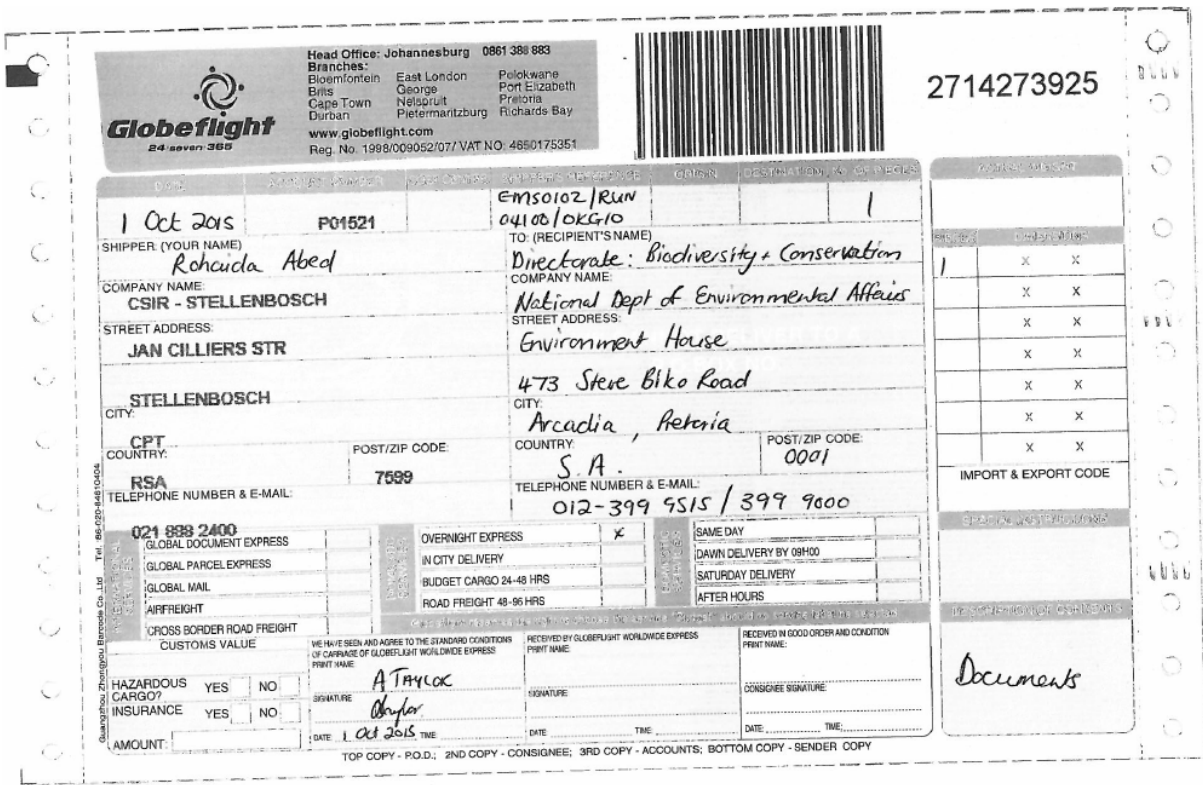 Globeflight
24·seven·365
Head Office: Johannesburg 0861 388 883
Branches:
Bloemfontein East London Polokwane
Brits George Port Elizabeth
Cape Town Nelspruit Pretoria
Durban Pietermaritzburg Richards Bay
www.globeflight.com
Reg. No. 1998/009052/07/ VAT NO: 4650175351
2714273925
DATE ACCOUNT NUMBER SHIPPER'S REFERENCE ORIGIN DESTINATION NO. OF PIECES
1 Oct 2015 P01521 EMS0102/RUN 1
04100/OKG10
SHIPPER: (YOUR NAME)
Rohaida Abed
COMPANY NAME:
CSIR - STELLENBOSCH
STREET ADDRESS:
JAN CILLIERS STR
STELLENBOSCH
CITY:
CPT
COUNTRY:
RSA
POST/ZIP CODE:
7599
TELEPHONE NUMBER & E-MAIL:
021 888 2400
TO: (RECIPIENT'S NAME)
Directorate: Biodiversity + Conservation
COMPANY NAME:
National Dept of Environmental Affairs
STREET ADDRESS:
Environment House
473 Steve Biko Road
CITY:
Arcadia, Pretoria
COUNTRY:
S.A.
POST/ZIP CODE:
0001
TELEPHONE NUMBER & E-MAIL:
012-399 9515 / 399 9000
1 X X
X X
X X
X X
X X
X X
X X
IMPORT & EXPORT CODE
SPECIAL INSTRUCTIONS
GLOBAL DOCUMENT EXPRESS
GLOBAL PARCEL EXPRESS
GLOBAL MAIL
AIRFREIGHT
CROSS BORDER ROAD FREIGHT
OVERNIGHT EXPRESS x
IN CITY DELIVERY
BUDGET CARGO 24-48 HRS
ROAD FREIGHT 48-96 HRS
SAME DAY
DAWN DELIVERY BY 09H00
SATURDAY DELIVERY
AFTER HOURS
CUSTOMS VALUE
HAZARDOUS CARGO? YES NO
INSURANCE YES NO
AMOUNT:
WE HAVE SEEN AND AGREE TO THE STANDARD CONDITIONS
OF CARRIAGE OF GLOBEFLIGHT WORLDWIDE EXPRESS
PRINT NAME:
A TAYLOR
SIGNATURE
DATE: 1 Oct 2015 TIME
RECEIVED BY GLOBEFLIGHT WORLDWIDE EXPRESS
PRINT NAME:
SIGNATURE:
DATE: TIME:
RECEIVED IN GOOD ORDER AND CONDITION
PRINT NAME:
CONSIGNEE SIGNATURE:
DATE: TIME:
DESCRIPTION OF CONTENTS
Documents
TOP COPY - P.O.D.; 2ND COPY - CONSIGNEE; 3RD COPY - ACCOUNTS; BOTTOM COPY - SENDER COPY
Guangzhou Zhongyou Barcode Co.,Ltd Tel.:86-020-84610404